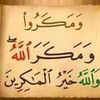 وَمَكَرُواْ
وَمَكَرَ ٱللَّهُ
وَٱللَّهُ خَيْرُ ٱلْمَـٰكِرِينَ